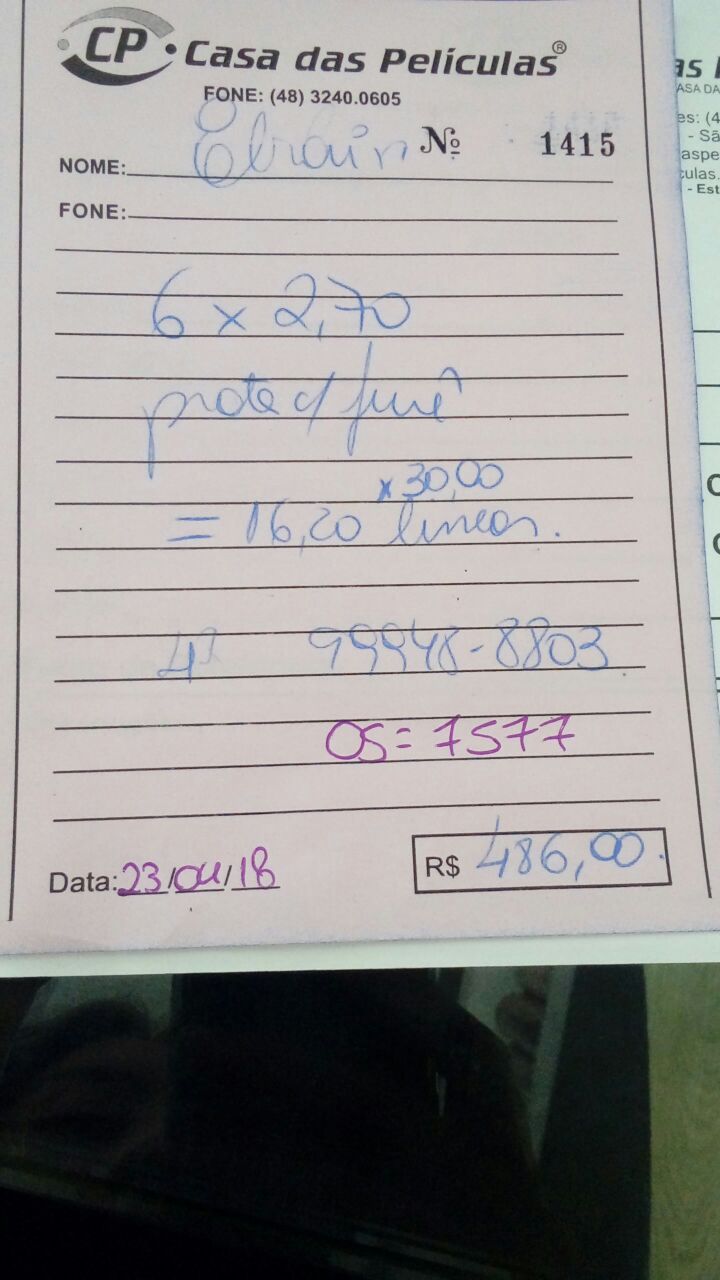 CP • Casa das Películas®
FONE: (48) 3240.0605
Nº 1415
NOME: Efrain
FONE:
6 x 2,70
prata c/ fumê
x 30,00
= 16,20 linear.
99948-8803
OS = 7577
Data: 23/04/18
R$ 486,00.
as
ASA DA
es: (4
- Sã
aspe
culas.
- Est